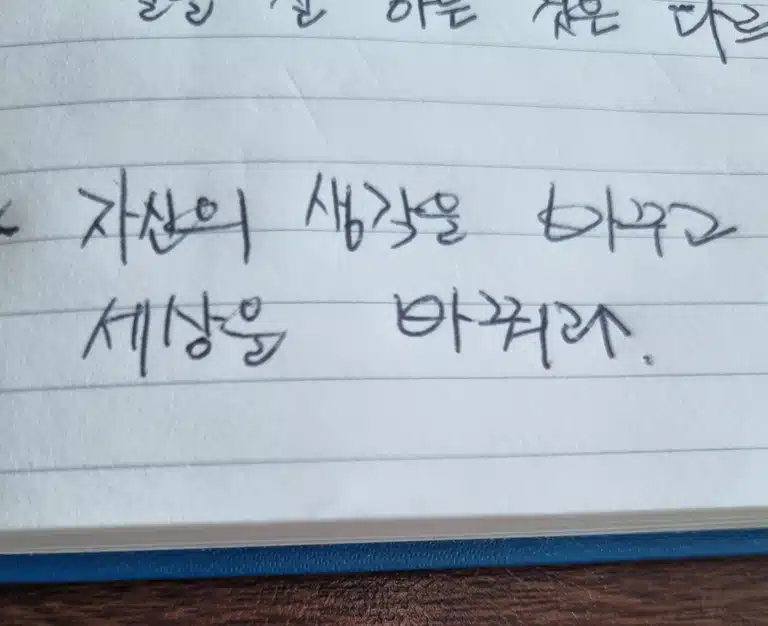 잘 하는 것은 다르
자신의 생각을 바꾸고
세상을 바꿔라.